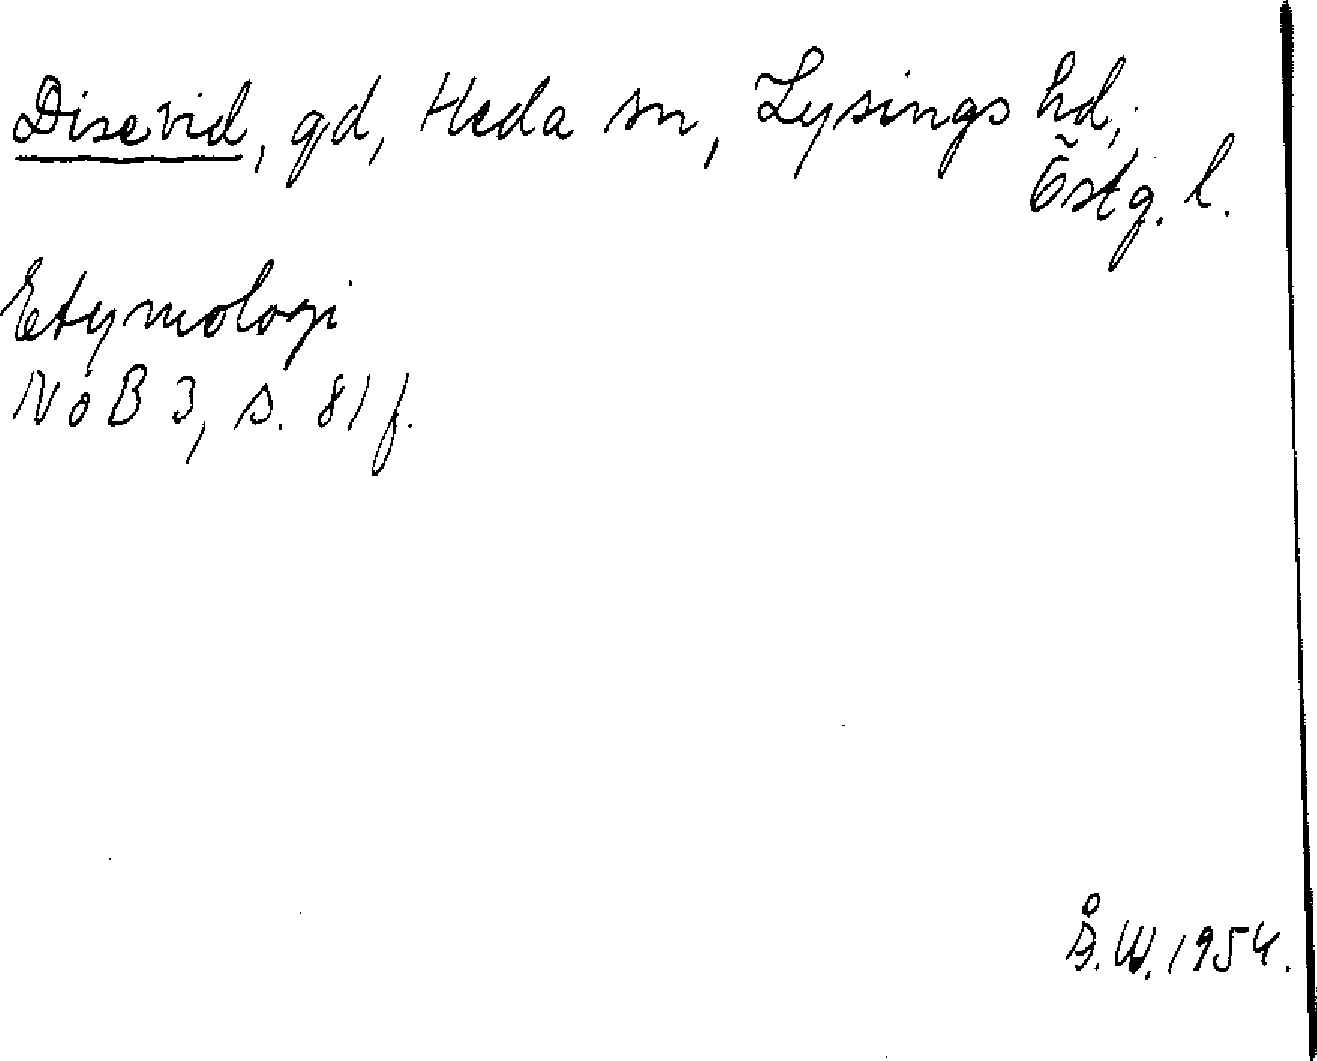 Disevid, gd, Heda sn, Lysings hd,
Östg. l.
Etymologi
NoB 3, s. 81 f.
Å.W. 1954.